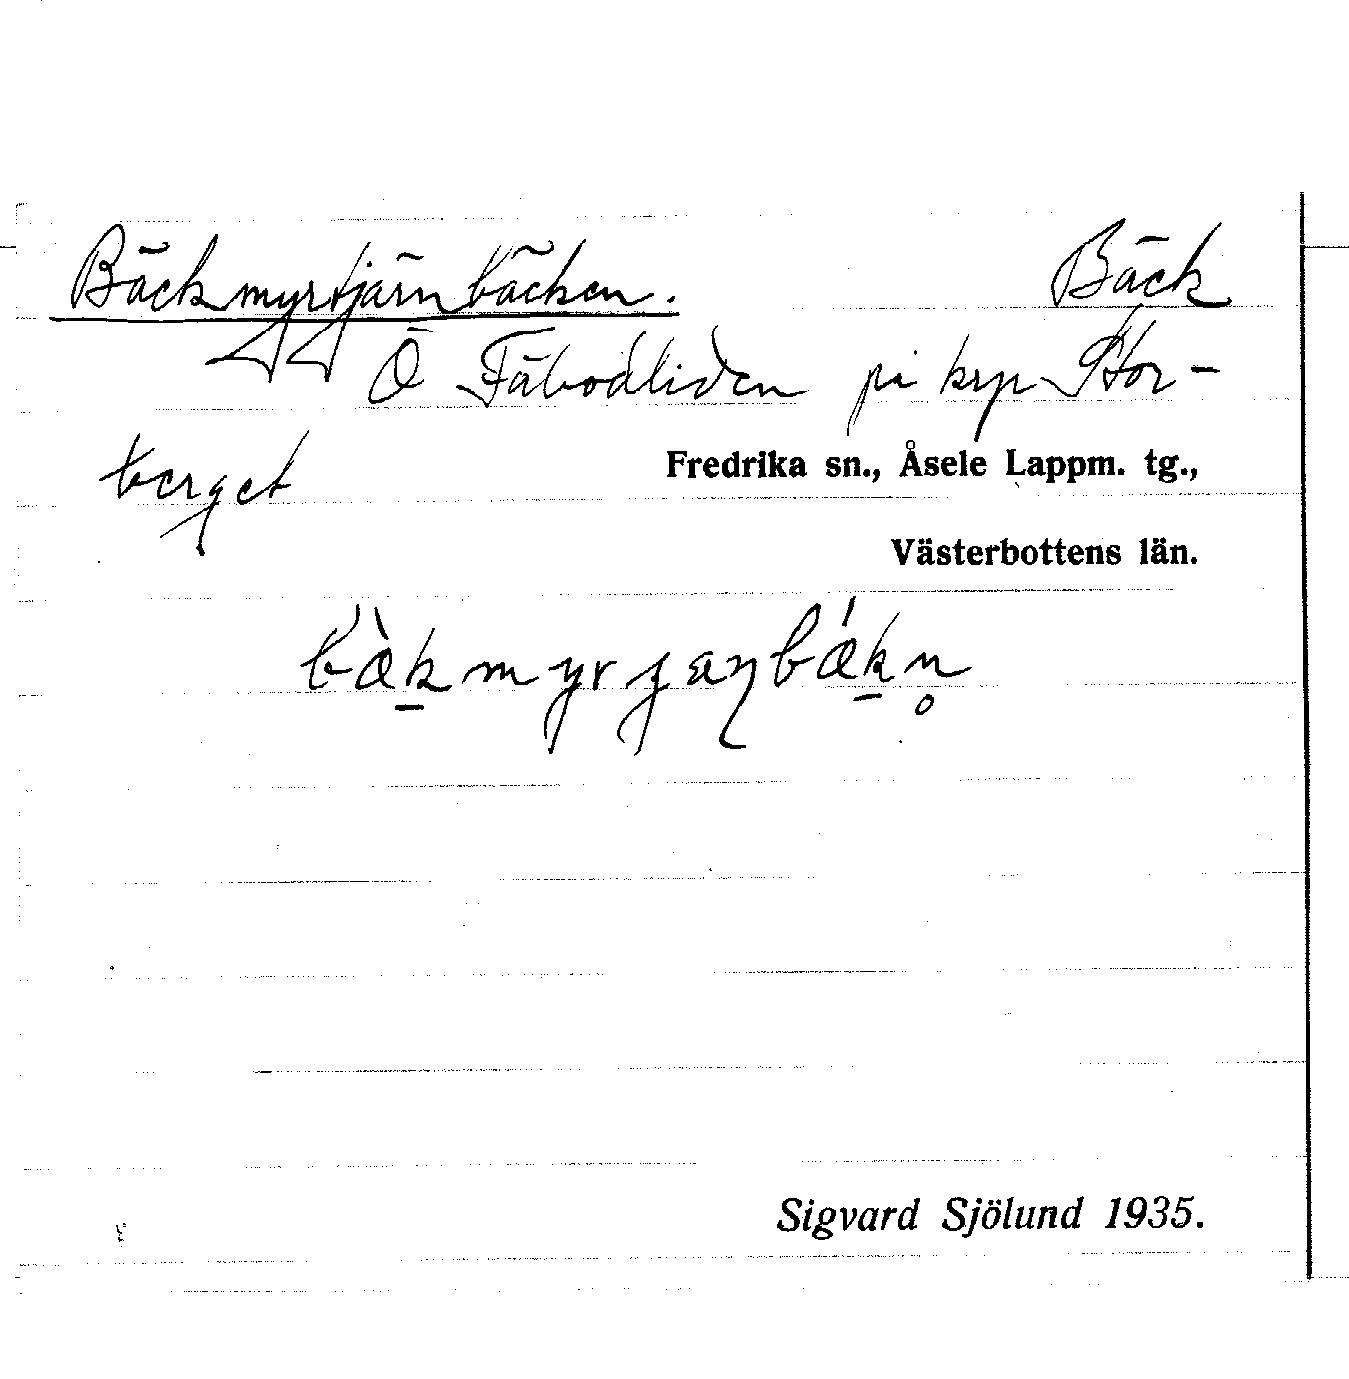 Bäckmyrtjärnbäcken. Bäck
Ö Fäbodliden på krp Stor-
berget
Fredrika sn., Åsele Lappm. tg.,
Västerbottens län.
bæ̀k̠myrjæɳbǽk̠n̥
Sigvard Sjölund 1935.